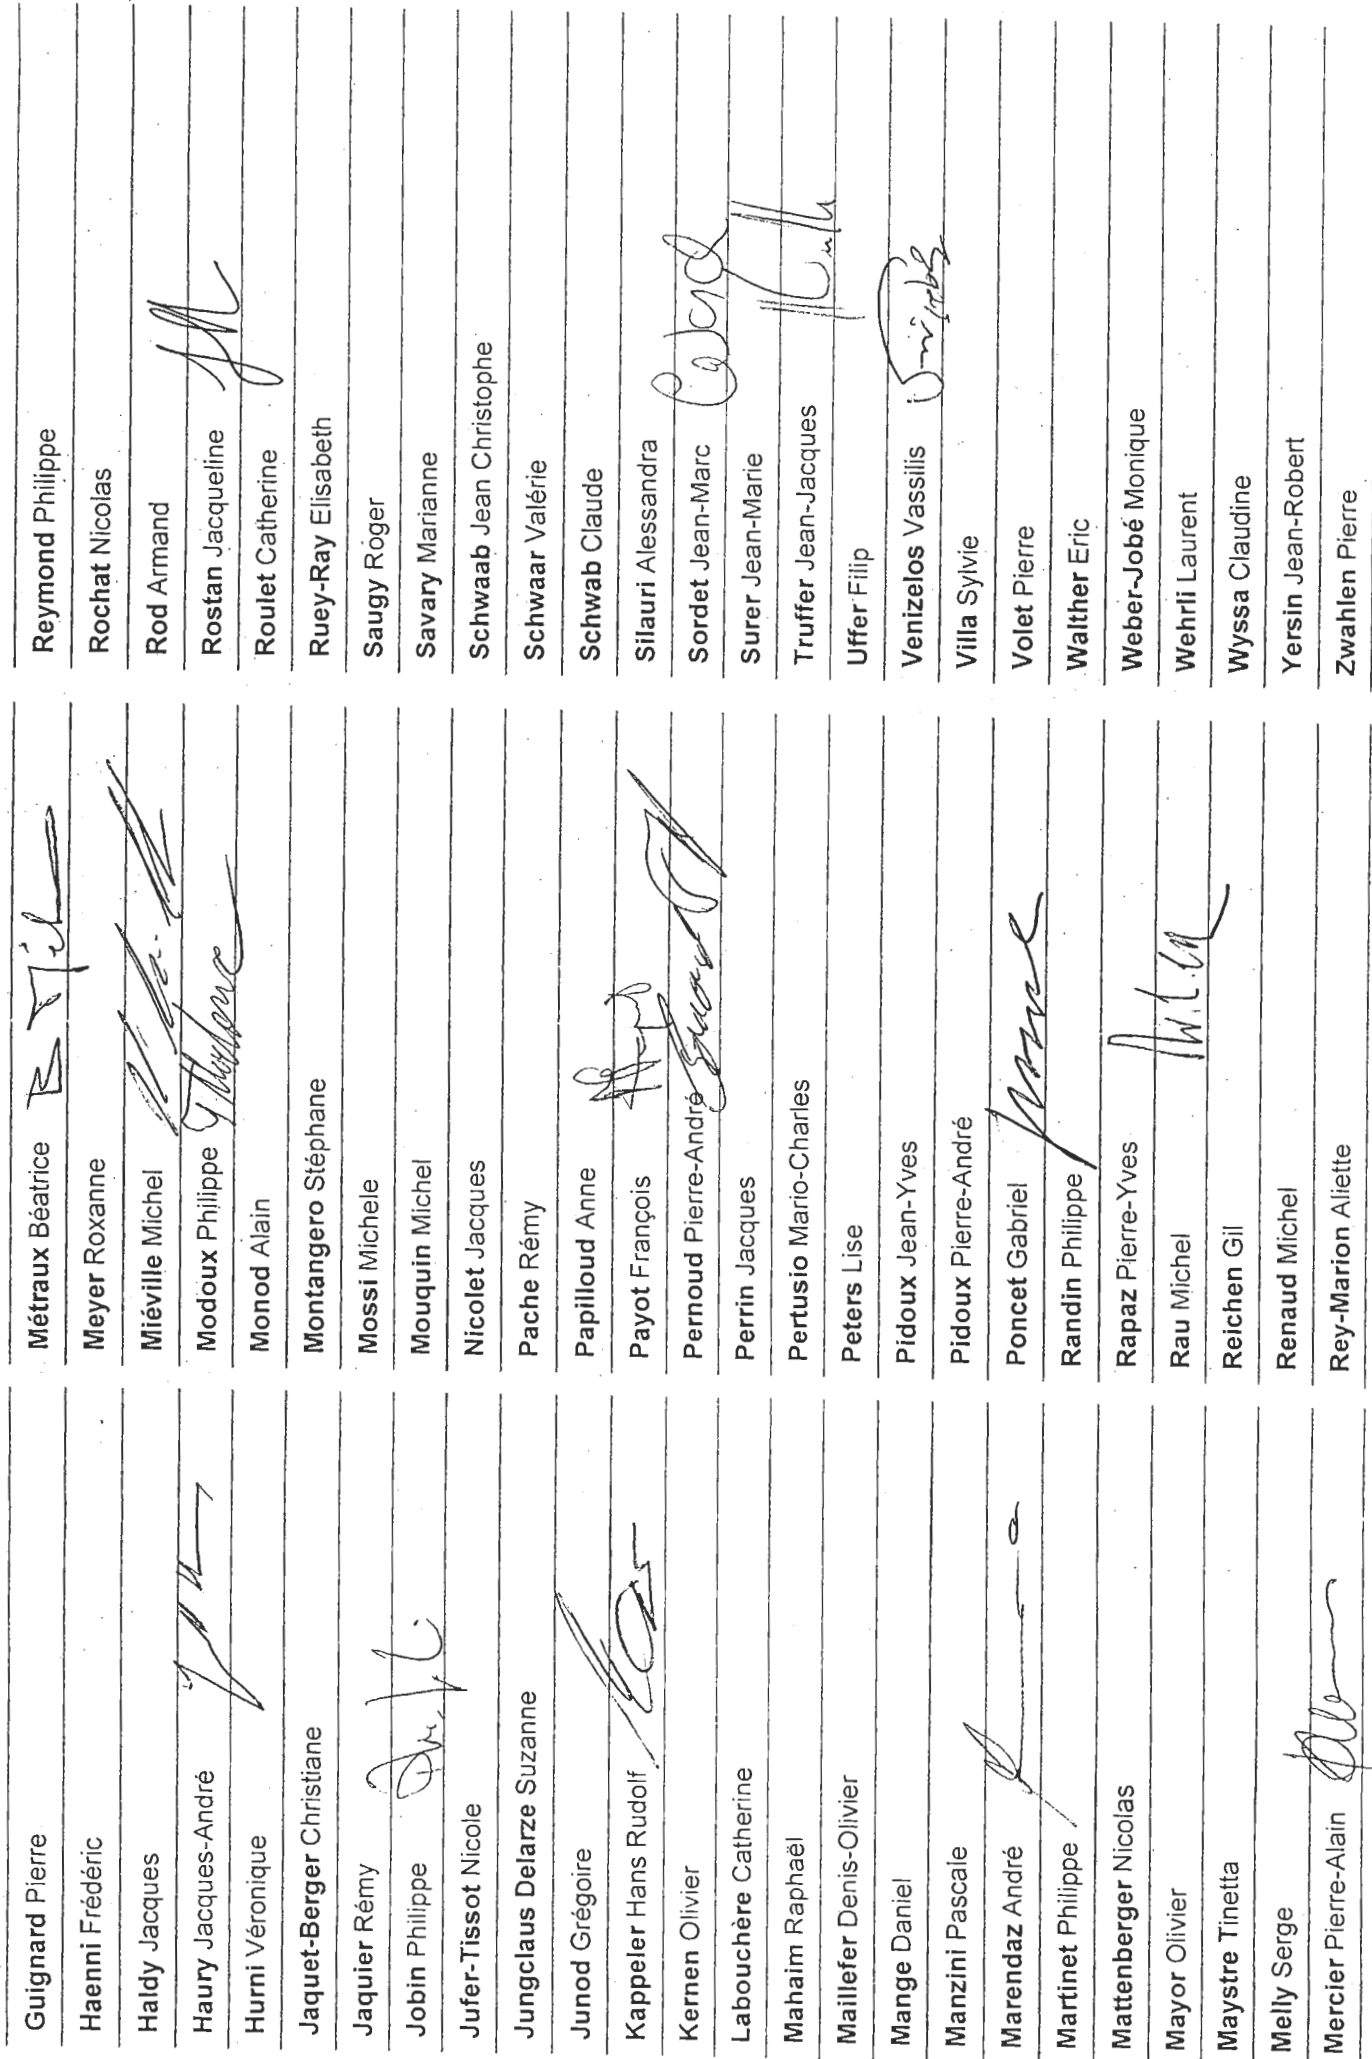 Guignard Pierre
Haenni Frédéric
Haldy Jacques
Haury Jacques-André
Hurni Véronique
Jaquet-Berger Christiane
Jaquier Rémy
Jobin Philippe
Jufer-Tissot Nicole
Jungclaus Delarze Suzanne
Junod Grégoire
Kappeler Hans Rudolf
Kernen Olivier
Labouchère Catherine
Mahaim Raphaël
Maillefer Denis-Olivier
Mange Daniel
Manzini Pascale
Marendaz André
Martinet Philippe
Mattenberger Nicolas
Mayor Olivier
Maystre Tinetta
Melly Serge
Mercier Pierre-Alain
Métraux Béatrice
Meyer Roxanne
Miéville Michel
Modoux Philippe
Monod Alain
Montangero Stéphane
Mossi Michele
Mouquin Michel
Nicolet Jacques
Pache Rémy
Papilloud Anne
Payot François
Pernoud Pierre-André
Perrin Jacques
Pertusio Mario-Charles
Peters Lise
Pidoux Jean-Yves
Pidoux Pierre-André
Poncet Gabriel
Randin Philippe
Rapaz Pierre-Yves
Rau Michel
Reichen Gil
Renaud Michel
Rey-Marion Aliette
Reymond Philippe
Rochat Nicolas
Rod Armand
Rostan Jacqueline
Roulet Catherine
Ruey-Ray Elisabeth
Saugy Roger
Savary Marianne
Schwaab Jean Christophe
Schwaar Valérie
Schwab Claude
Silauri Alessandra
Sordet Jean-Marc
Surer Jean-Marie
Truffer Jean-Jacques
Uffer Filip
Venizelos Vassilis
Villa Sylvie
Volet Pierre
Walther Eric
Weber-Jobé Monique
Wehrli Laurent
Wyssa Claudine
Yersin Jean-Robert
Zwahlen Pierre